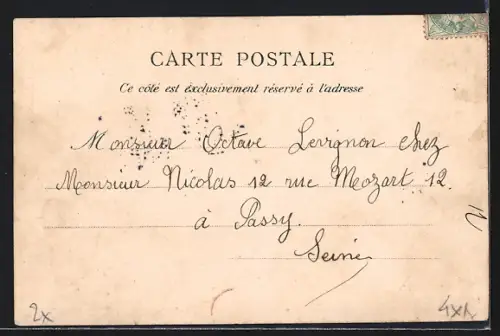 CARTE POSTALE
Ce côté est exclusivement réservé à l'adresse
Monsieur Octave Levrignon chez
Monsieur Nicolas 12 rue Mozart 12.
à Passy.
Seine
12
2x